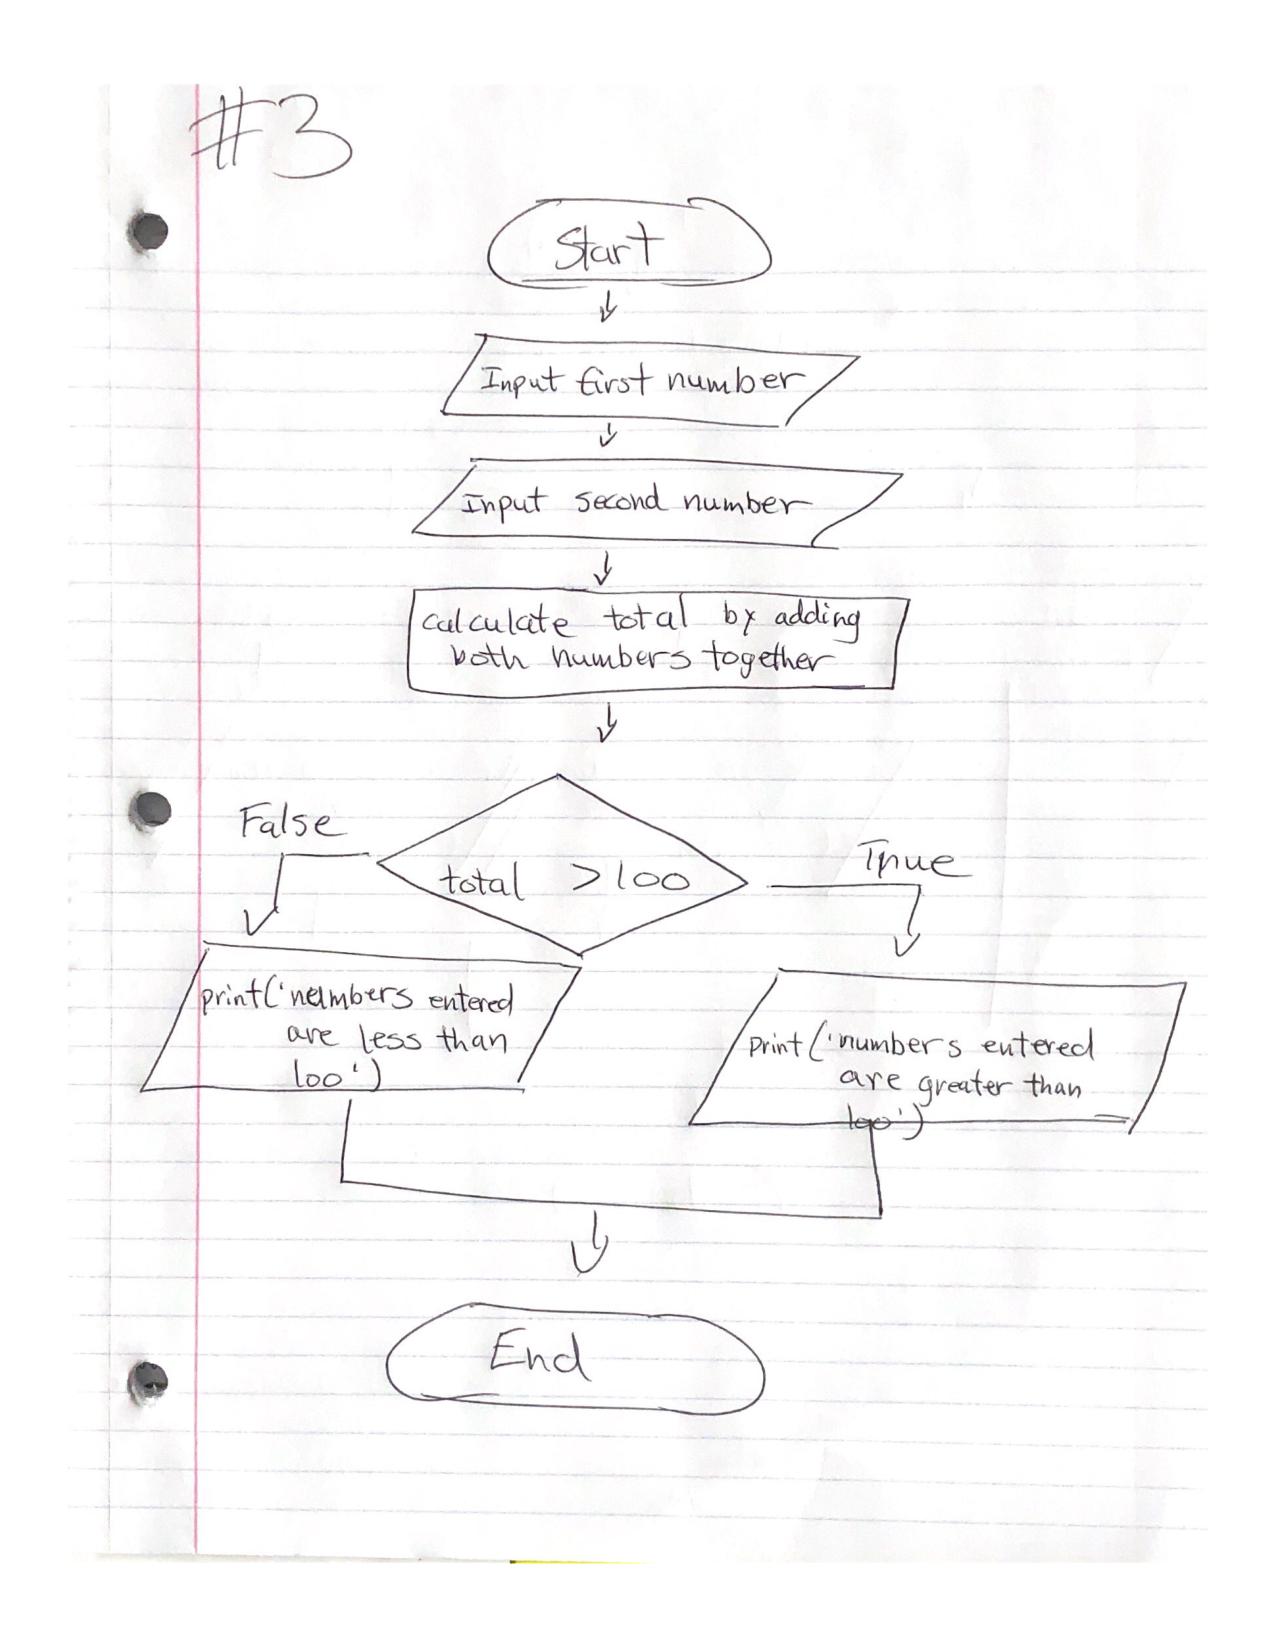 #3
Start
Input first number
Input second number
calculate total by adding
both numbers together
False
True
total > 100
print('numbers entered
are less than
100')
print('numbers entered
are greater than
100')
End